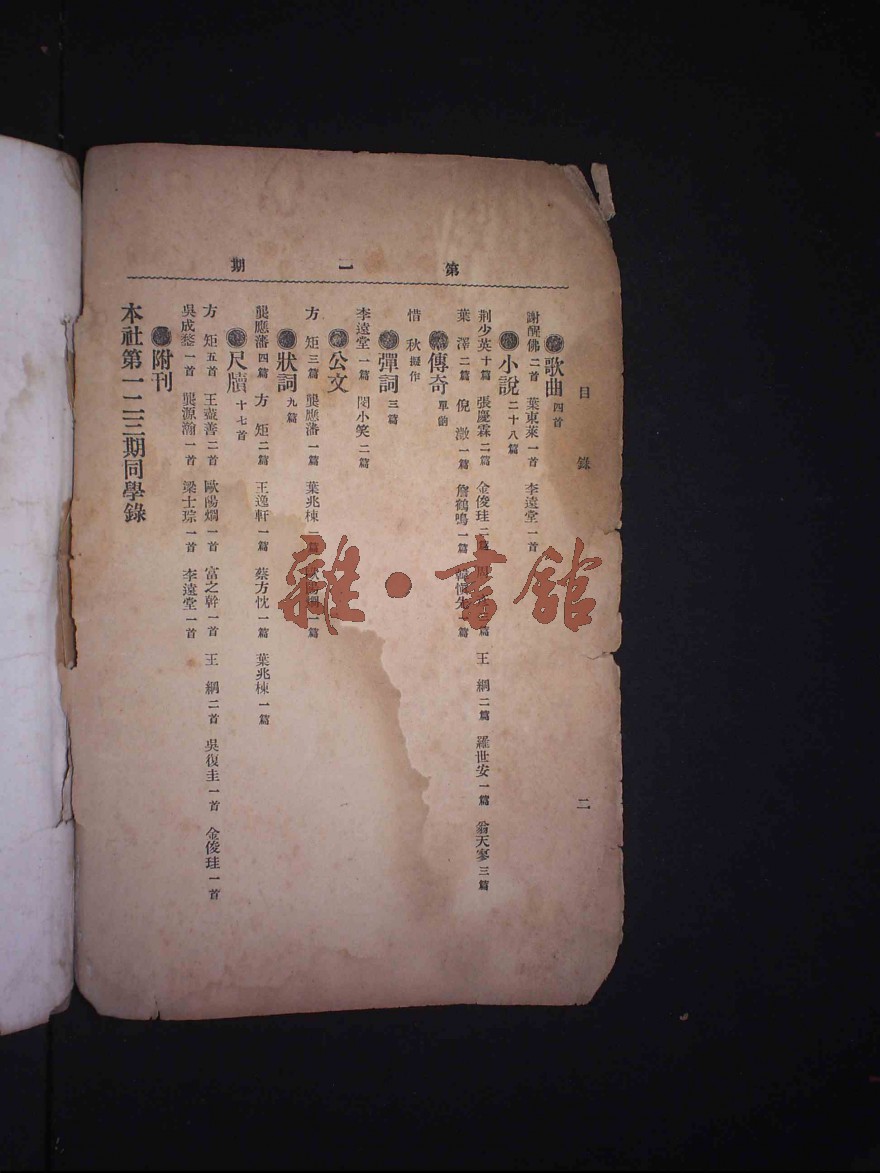 第二期
目錄 二
歌曲 四首
謝醒佛 二首 葉東萊 一首 李遠堂 一首
小說 二十八篇
荆少英 十篇 張慶霖 二篇 金俊珪 二篇 篇 王 綱 二篇 羅世安 一篇 翁天寥 三篇
葉 澤 二篇 倪 澂 一篇 詹鶴鳴 一篇 韓慎先 一篇
傳奇 單齣
惜 秋 擬作
彈詞 三篇
李遠堂 一篇 閔小笑 二篇
公文
方 矩 三篇 龔應藩 一篇 葉兆棟 篇 一篇
狀詞 九篇
龔應藩 四篇 方 矩 二篇 王逸軒 一篇 蔡方忱 一篇 葉兆棟 一篇
尺牘 十七首
方 矩 五首 王壺善 二首 歐陽爛 一首 富之幹 一首 王 綱 二首 吳復圭 一首 金俊珪 一首
吳成鍪 一首 龔源瀚 一首 梁士琮 一首 李遠堂 一首
附刊
本社第一二三期同學錄
雜·書館